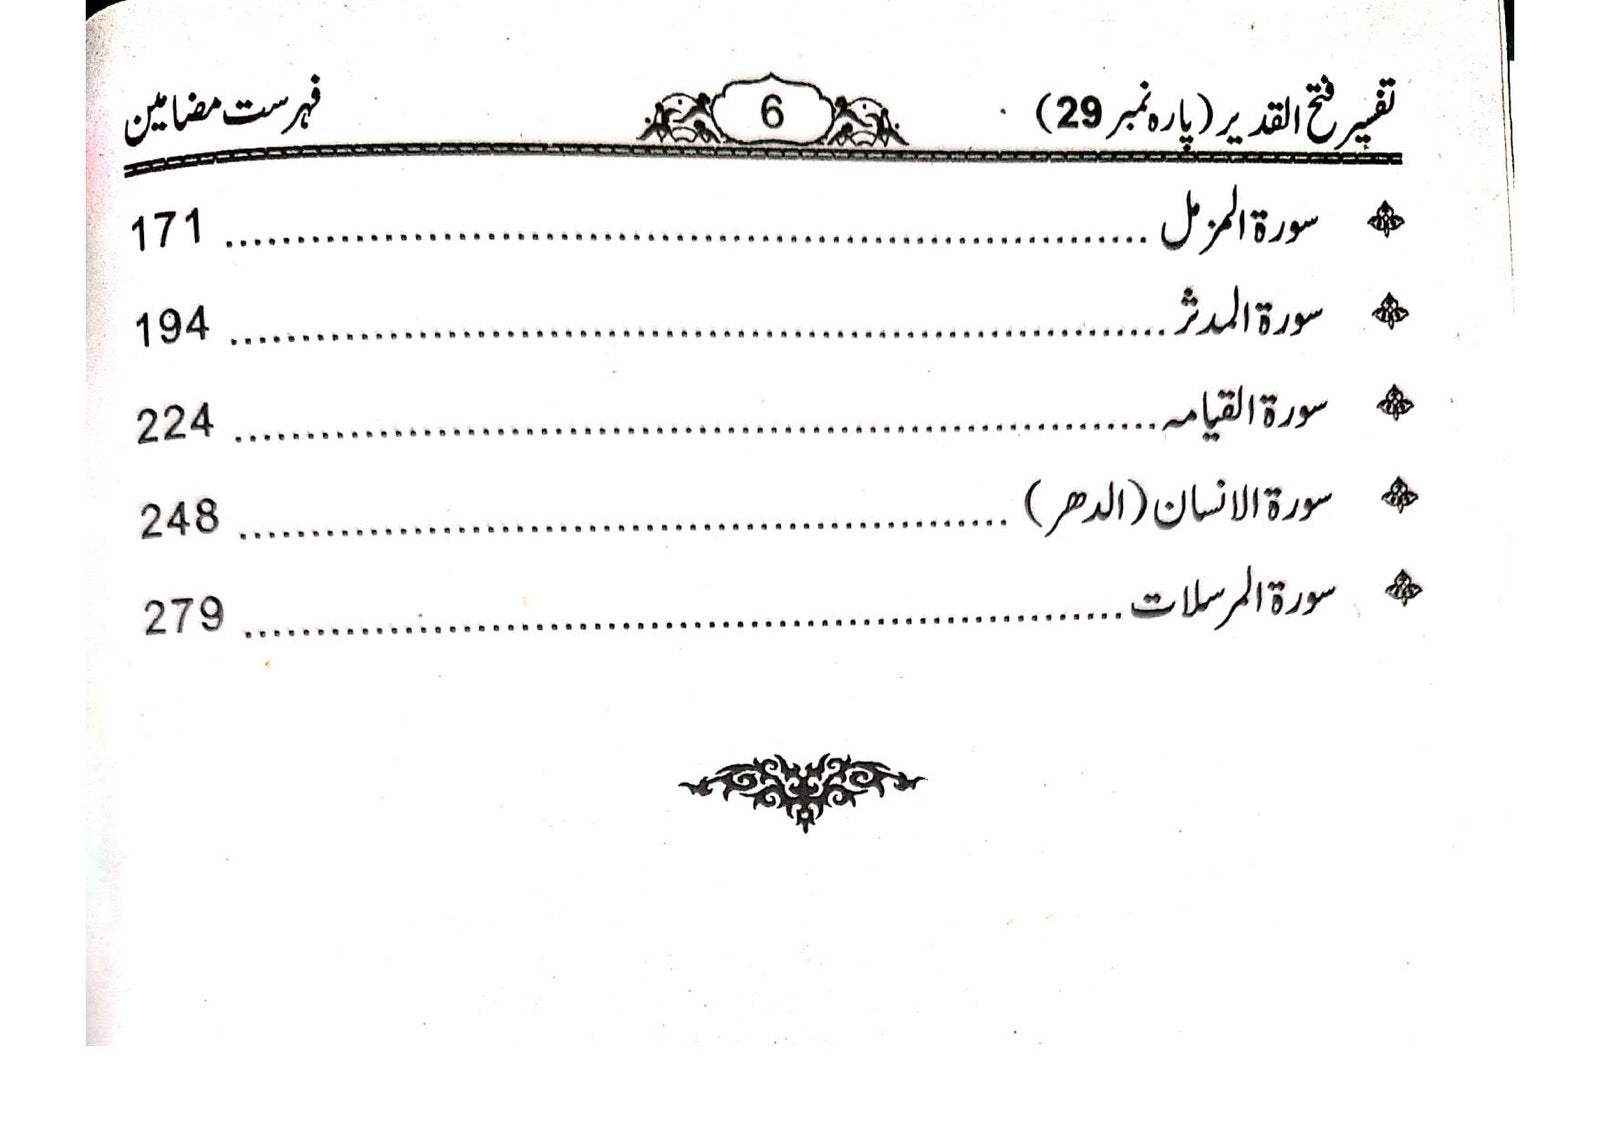 تفسیر فتح القدیر (پارہ نمبر 29) 6 فہرست مضامین
سورۃ المزمل ........................................ 171
سورۃ المدثر ........................................ 194
سورۃ القیامہ ........................................ 224
سورۃ الانسان (الدھر) ........................................ 248
سورۃ المرسلات ........................................ 279